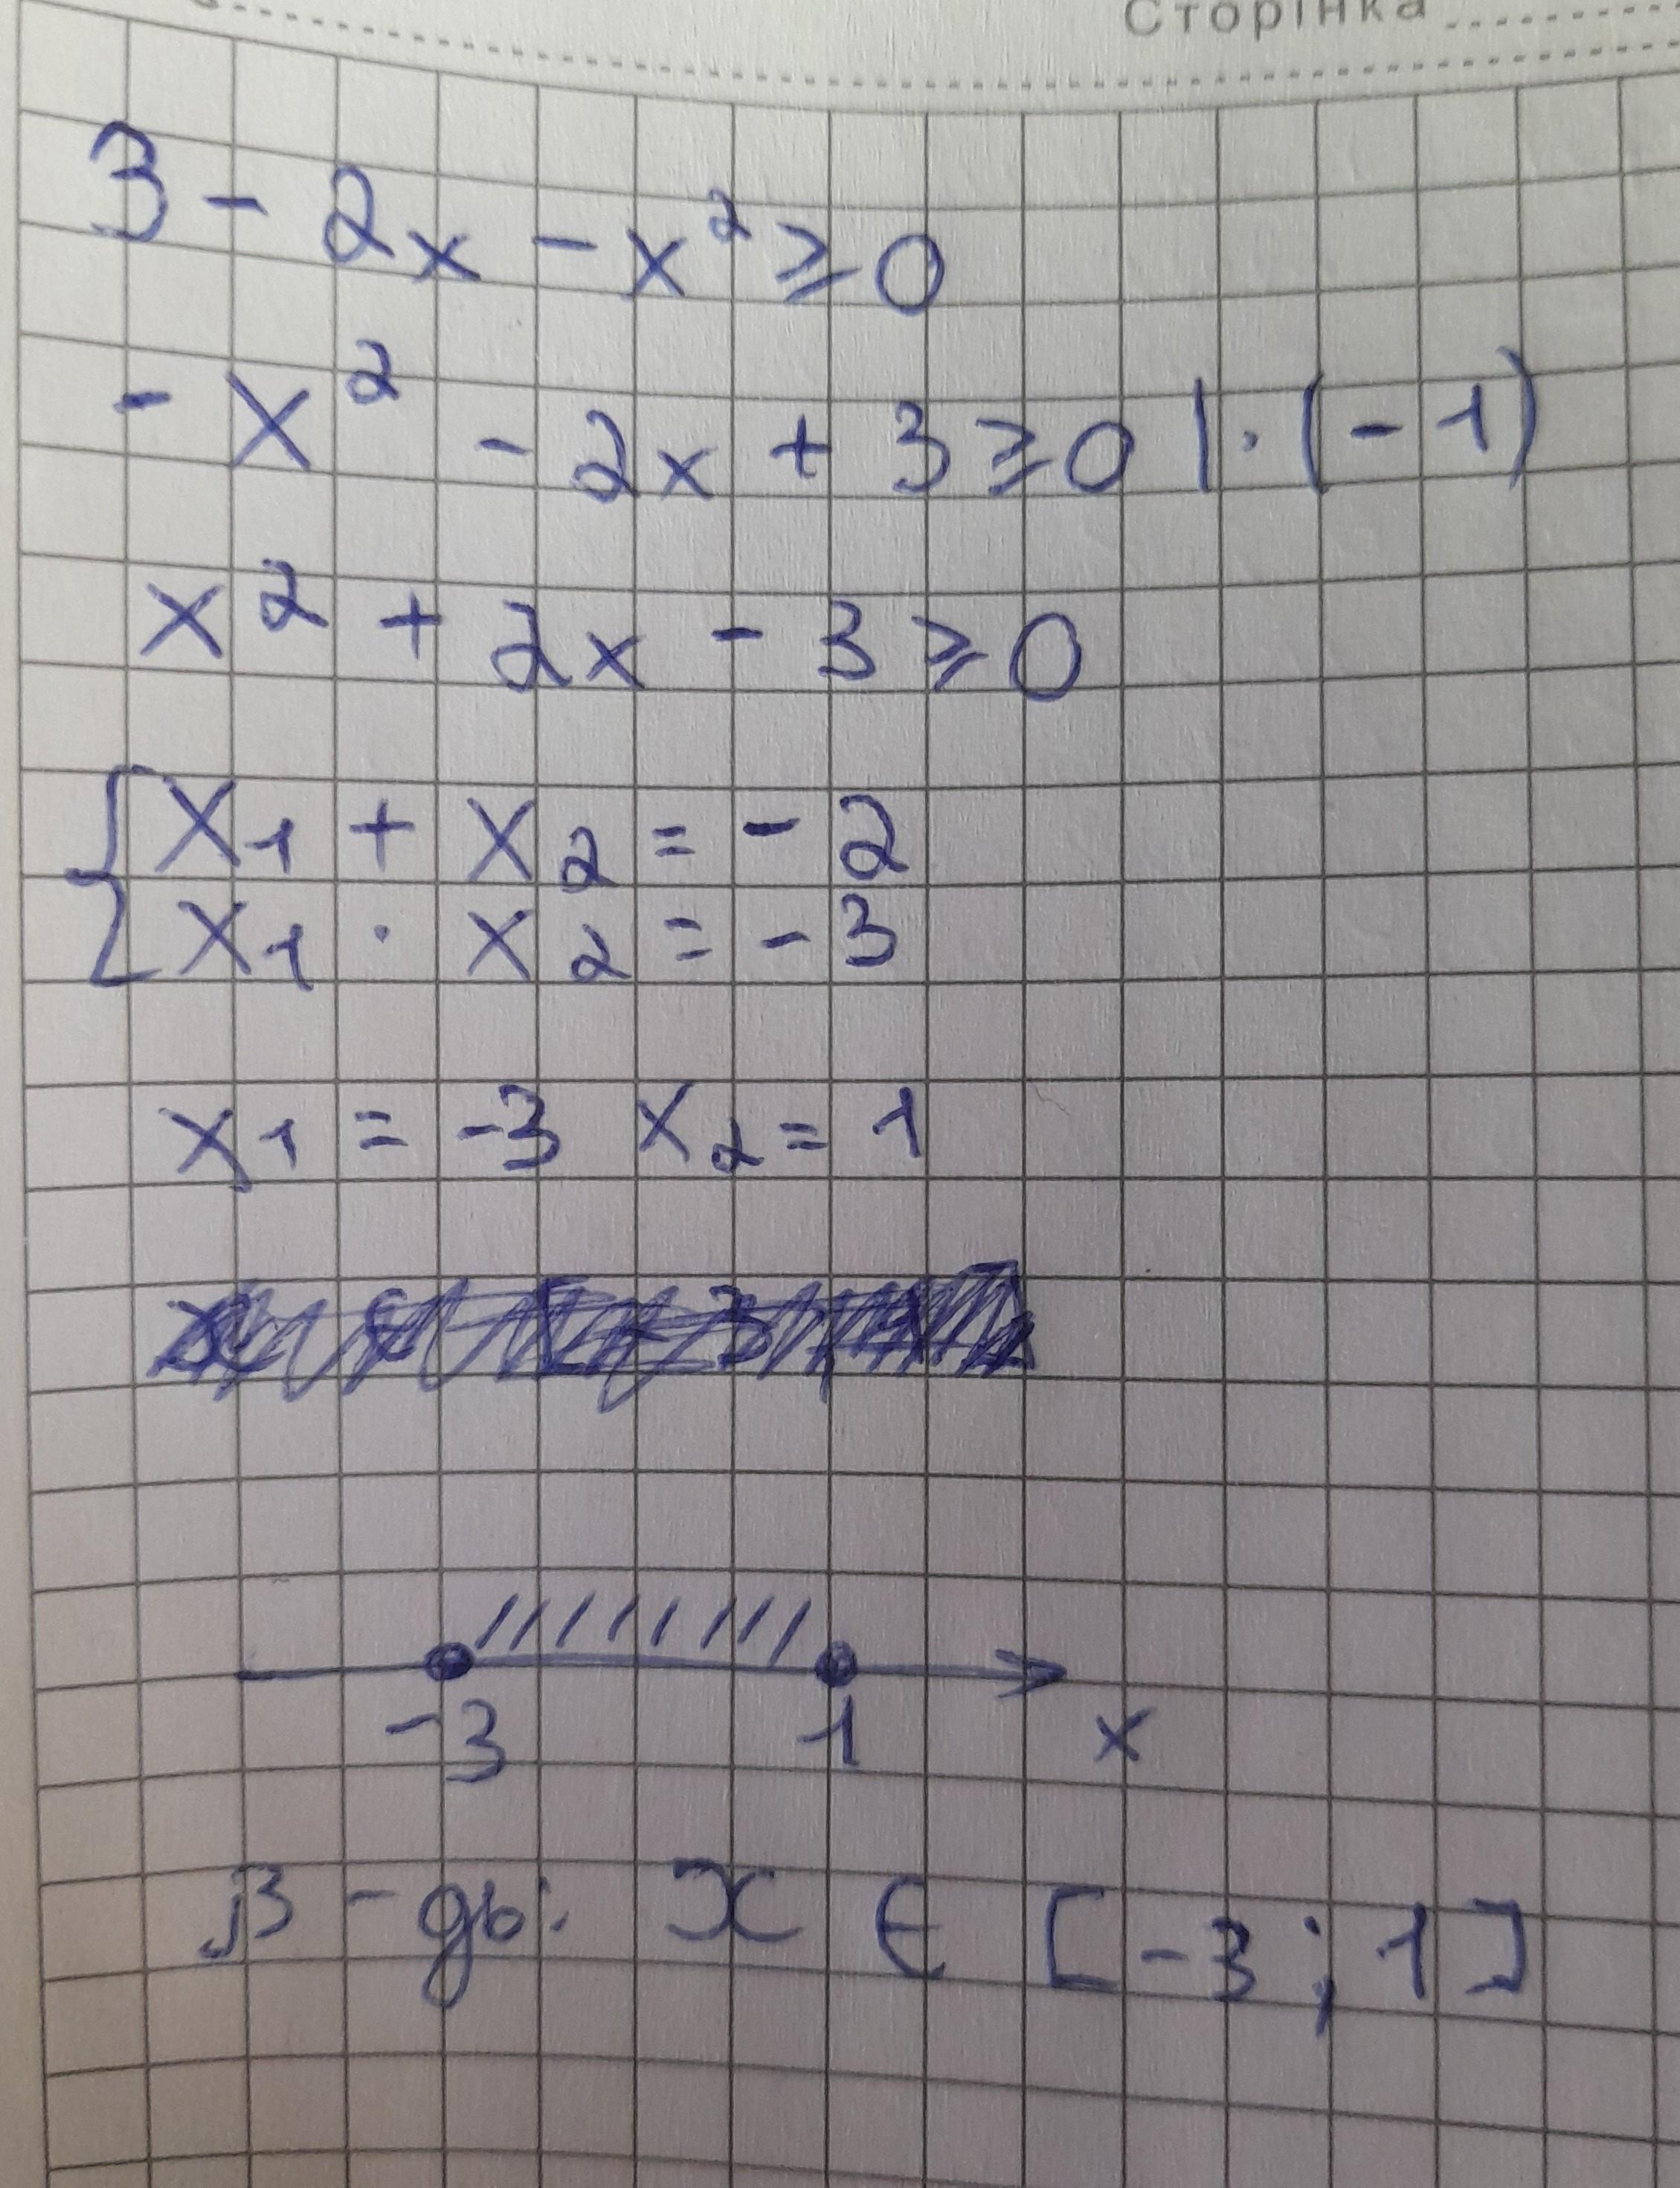 Сторінка
3 - 2x - x² ⩾ 0
- x² - 2x + 3 ⩾ 0 | · (- 1)
x² + 2x - 3 ⩾ 0
{ x₁ + x₂ = - 2
x₁ · x₂ = - 3
x₁ = -3 x₂ = 1
-3 1 x
В-дь: x ∈ [-3; 1]